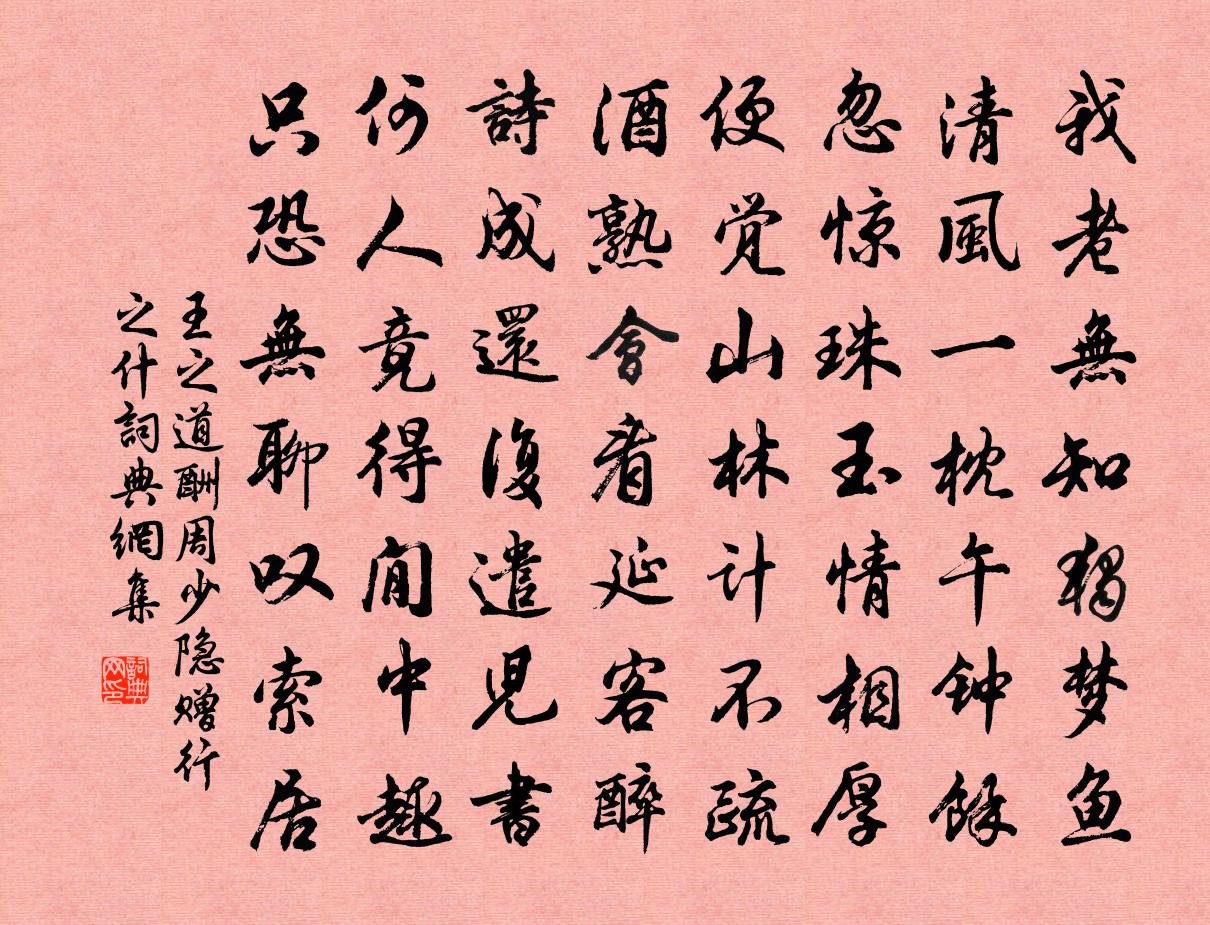 我老無知獨梦鱼
清風一枕午钟餘
忽惊珠玉情相厚
便觉山林计不疏
酒熟會看延客醉
詩成還復遣児書
何人竟得閒中趣
只恐無聊叹索居
王之道酬周少隐赠行
之什詞典網集
詞典网印